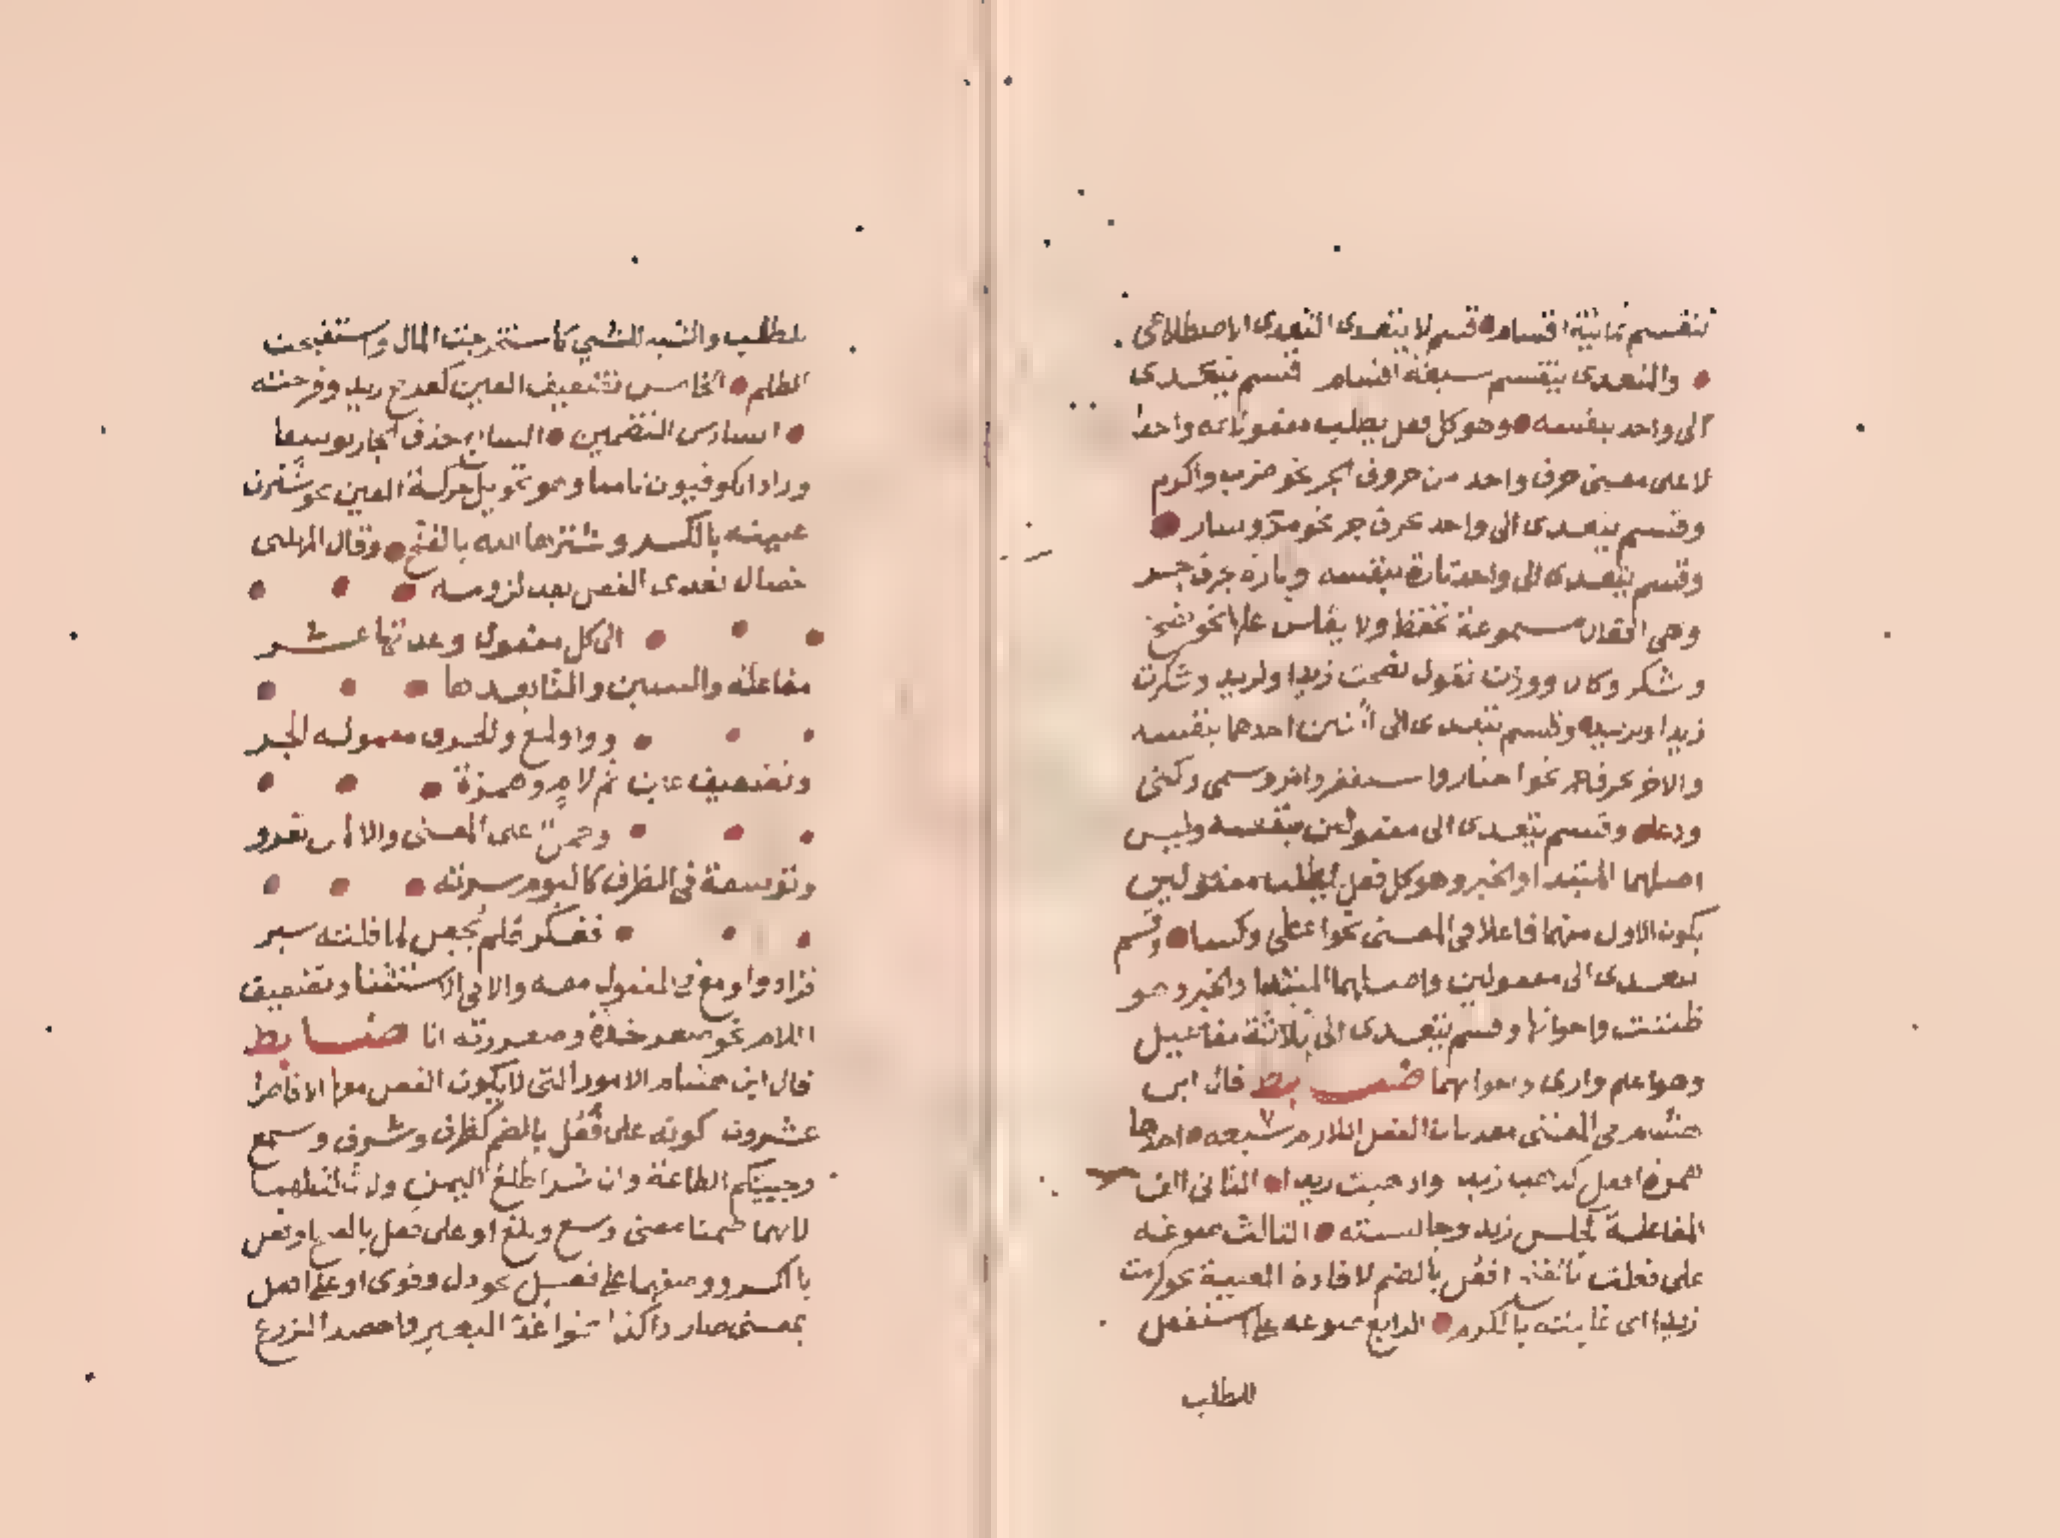 تنقسم ثمانية اقسام قسم لا يتعدى التعدى الاصطلاحى
والتعدى ينقسم سبعة اقسام قسم يتعدى
الى واحد بنفسه وهو كل فعل يطلب مفعولا به واحدا
لا على معنى حرف واحد من حروف الجر نحو ضرب واكرم
وقسم يتعدى الى واحد بحرف جر نحو مر وسار
وقسم يتعدى الى واحد تارة بنفسه وتارة بحرف جر
وهى افعال مسموعة تحفظ ولا يقاس عليها نحو نصح
وشكر وكال ووزن تقول نصحت زيدا ولزيد وشكرت
زيدا ولزيد وقسم يتعدى الى اثنين احدهما بنفسه
والاخر بحرف جر نحو اختار واستغفر وامر وسمى وكنى
ودعا وقسم يتعدى الى مفعولين بنفسه وليس
اصلهما المبتدا والخبر وهو كل فعل يطلب مفعولين
يكون الاول منهما فاعلا فى المعنى نحو اعطى وكسا وقسم
يتعدى الى مفعولين واصلهما المبتدا والخبر وهو
ظننت واخواتها وقسم يتعدى الى ثلاثة مفاعيل
وهو اعلم وارى واخواتهما ضابط قال ابن
هشام فى المغنى معديات الفعل اللازم سبعه احدها
همزة افعل كذهب زيد واذهبت زيدا الثانى الف
المفاعلة كجلس زيد وجالسته الثالث صوغه
على فعلت بالفتح افعل بالضم لافادة الغلبة نحو كرمت
زيدا اى غلبته بالكرم الرابع صوغه على استفعل
للطلب
للطلب والنسبه للشيى كاستخرجت المال واستقبحت
الظلم الخامس تضعيف العين كفرح زيد وفرحته
السادس التضمين السابع حذف الجار توسعا
وزاد الكوفيون ثامنا وهو تحويل حركة العين نحو شترت
عينه بالكسر وشترها الله بالفتح وقال المهلبى
خصال تعدى الفعل بعد لزومه
الى كل مفعول وعدتها عشر
مفاعلة والسين والتا بعدها
وواو لمع وللحرف معموله الجر
وتضعيف عين ثم لام وهمزة
وحمل على المعنى والا لمن تعرو
وتوسعة فى الظرف كاليوم سرته
ففكر فلم نجعل لما قلته سبر
فزاد واو مع فى المفعول معه والا فى الاستثنا وتضعيف
اللام نحو صعر خده وصعررته انا ضابط
قال ابن هشام الامور التى لا يكون الفعل معها الا قاصرا
عشرون كونه على فعل بالضم كظرف وشرف وسمع
رحبتكم الطاعة وان بشرا طلع اليمن ولا ثالث لهما
لانهما ضمنا معنى وسع وبلغ او على فعل بالفتح او فعل
بالكسر ووصفهما على فعيل نحو ذل وقوى او على افعل
بمعنى صار ذا كذا نحو اغد البعير واحصد الزرع